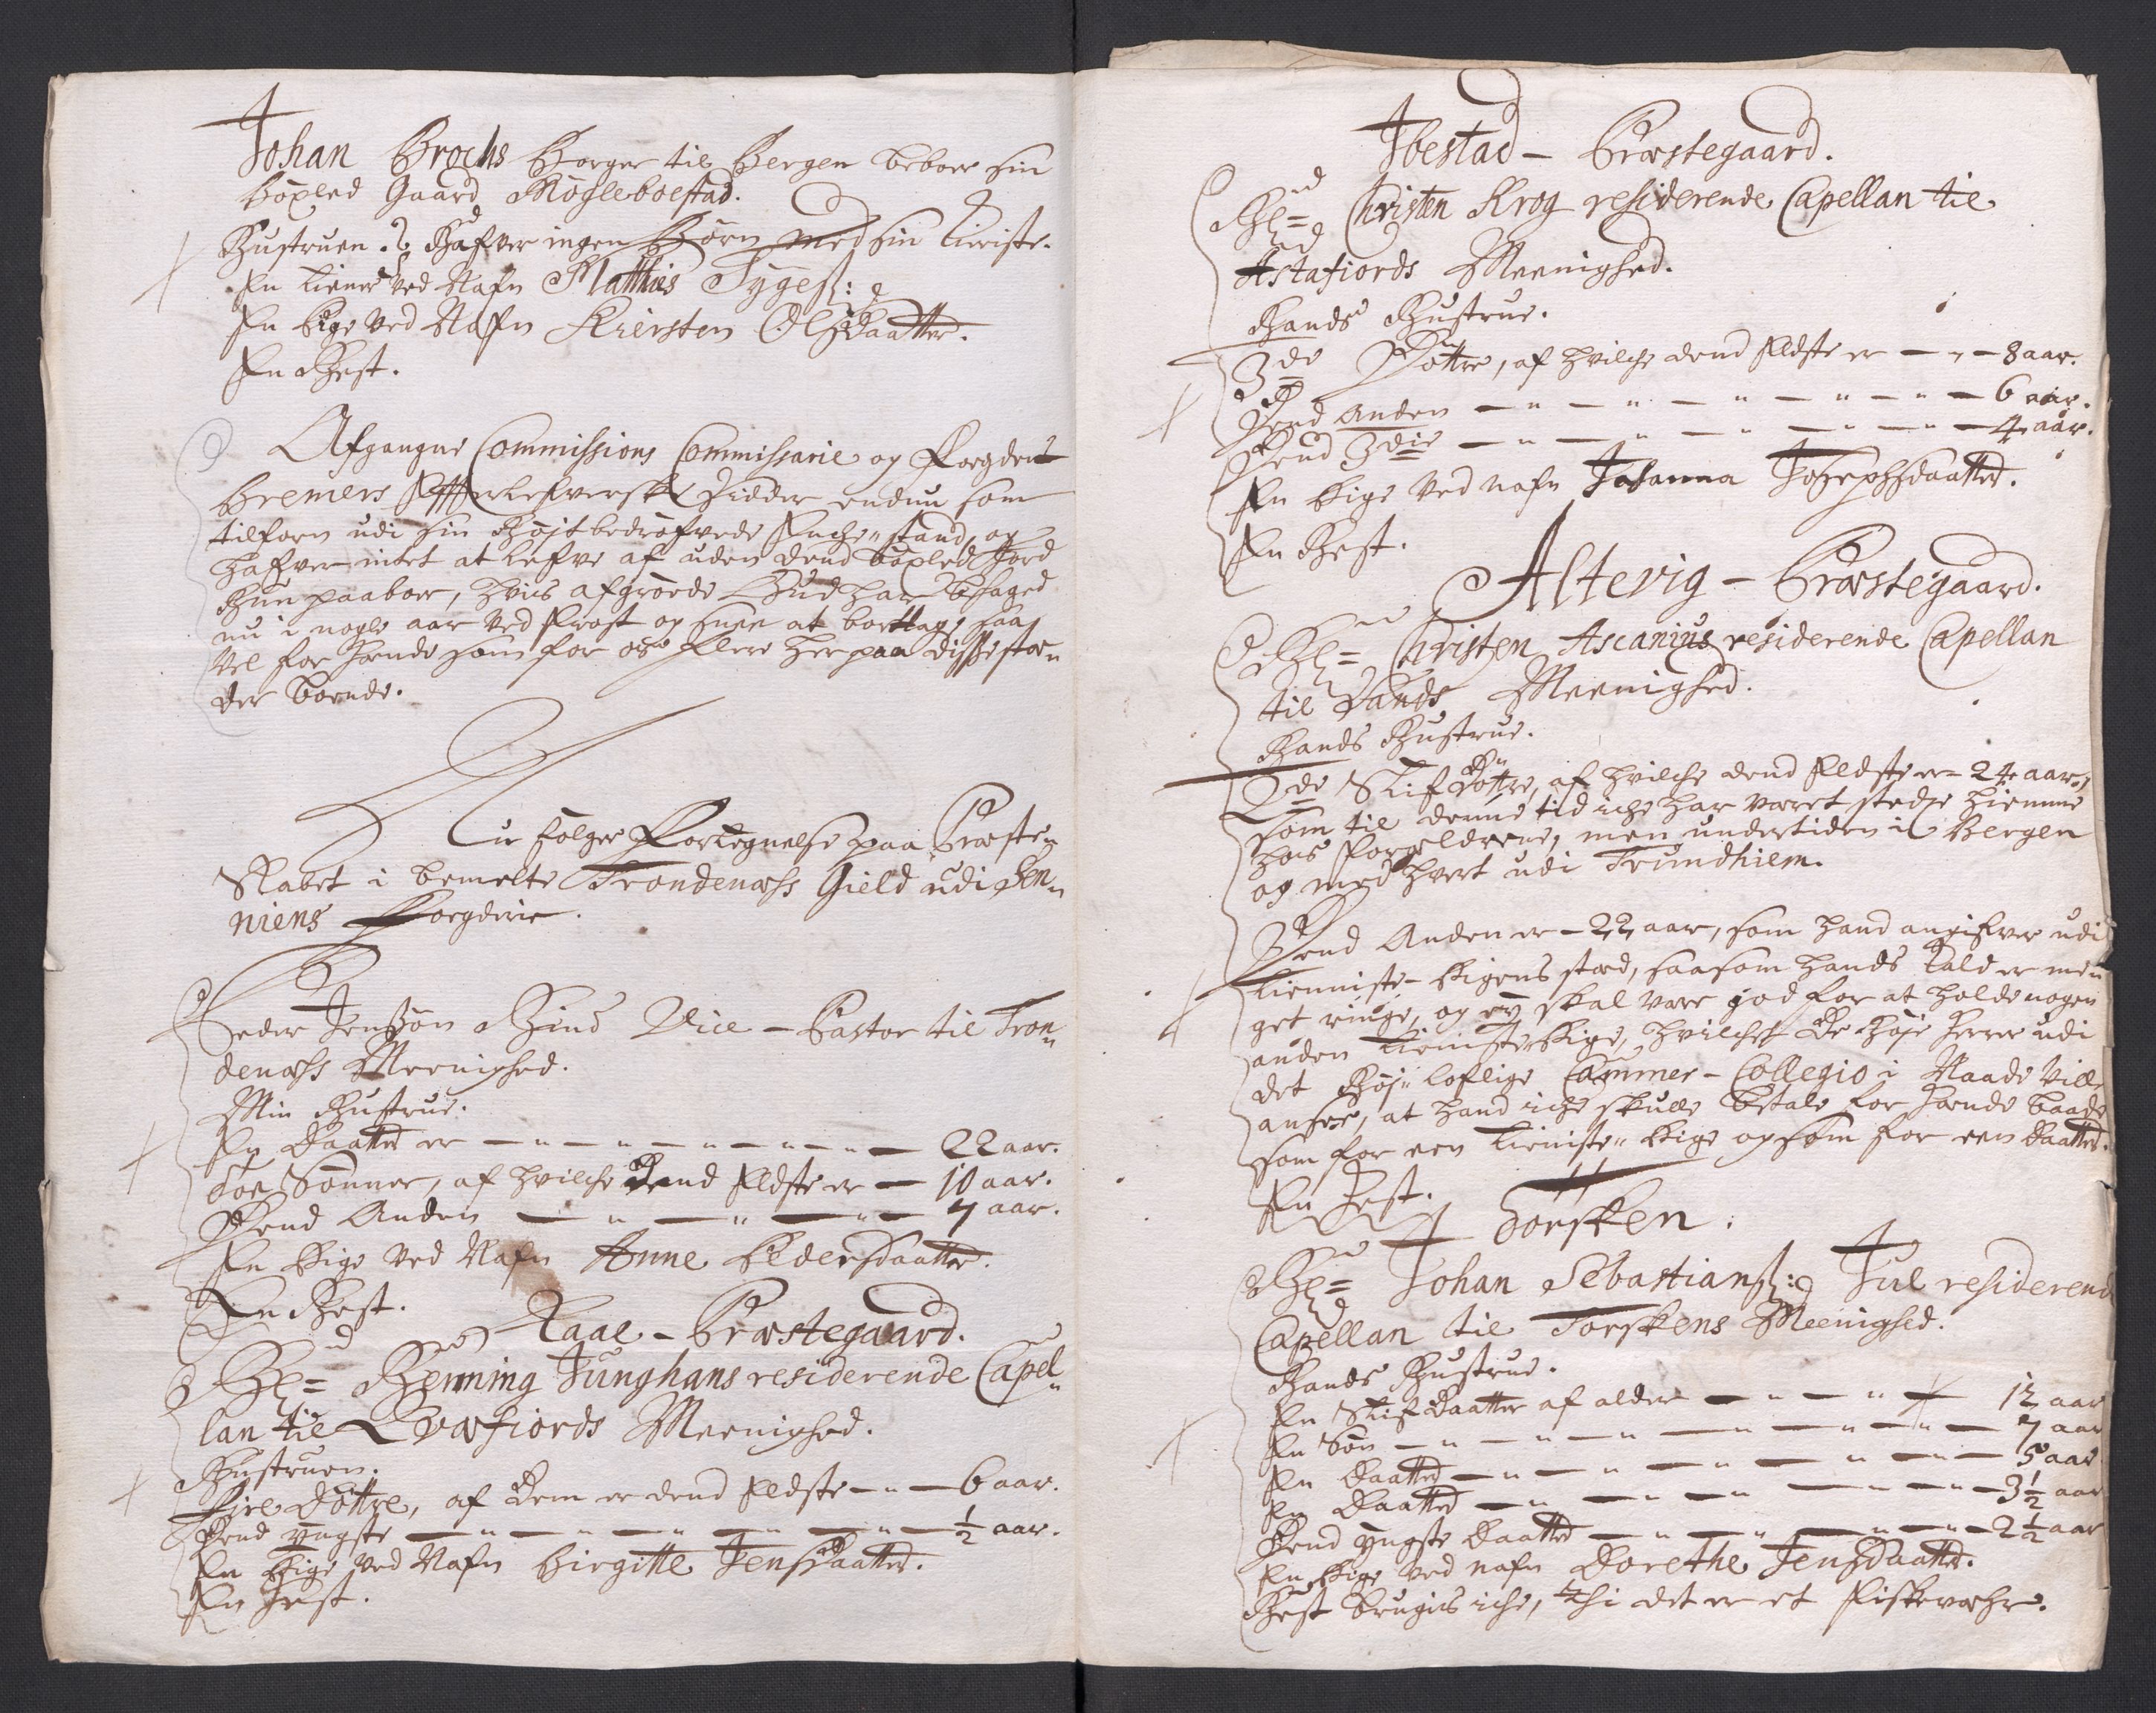 Johan Brochs Borger til Bergen beboer sin
böxled Gaard Mögleboestad.
Hustruen. Hafver ingen Börn med sin kieriste.
En tiener ved Nafn Matthies Tygeß:
En Pige ved Nafn Kiersten Olsdaatter.
En Hest.
Afgangne Commissions Commissarie og Foegden
Bremers Effterlefversk sidder endnu som
tilforn udi sin Höjstbedröfvede Enche-stand, og
hafver intet at lefve af uden dend böxled Jord
Hun paaboer, hvis afgröede Gud har behaged
nu i nogle aar ved Frost og Snee at borttage, saa
vel for hende som for os flere her paa disse stæ-
der boende.
Nu fölger Fortegnelse paa Præste-
skabet i bemelte Trondenæhs Gield udi Sen-
niens Foegderie.
Peder Jenssön Hind Vice-Pastor til Tron-
denæhs Meenighed.
Min Hustrue.
En Daatter er 22 aar.
Toe Sönner, af hvilche Dend Eldste er 10 aar.
Dend Anden 7 aar.
En Pige ved Nafn Anne Pedersdaatter.
En Hest.
Raae-Præstegaard.
Hr= Henning Junghans residerende Capel-
lan til Qvæfiords Meenighed.
Hustruen.
Fire Döttre, af Dem er dend Eldste 6 aar.
Dend yngste ½ aar.
En Pige ved Nafn Birgitte Jensdaatter.
En Hest.
Ibestad-Præstegaard.
Hr= Christen Krog residerende Capellan til
Astafiords Meenighed.
Hands Hustrue.
3de Döttre, af hvilche dend Eldste er 8 aar.
Dend Anden 6 aar.
Dend 3die 4 aar.
En Pige ved nafn Johanna Josephsdaatter.
En Hest.
Altevig-Præstegaard.
Hr= Christen Ascanius residerende Capellan
til Sands Meenighed.
Hands Hustrue.
2de Stifdöttre, af hvilche dend Eldste er 24 aar,
som til denne tid iche har været stedse hiemme
hos Forældrene, men undertiden i Bergen
og med hvert udi Trundhiem.
Dend Anden er 22 aar, som hand angifver udi
tienniste-Pigens sted, saasom hands kald er men
get ringe, og ey skal være god for at holde nogen
anden tieniste Pige, hvilchet De Höje Herrer udi
det Höj-loflige Cammer-Collegio i Naade ville
ansee, at hand iche skulle betale for hende baade
som for een tieniste-Pige og som for een Daatter.
En Hest.
Torsken.
Hr= Johan Sebastianß: Juel residerende
Capellan til Torskens Meenighed.
Hands Hustrue.
En Stifdaatter af alder 12 aar
En Sön 7 aar
En Daatter 5 aar
En Daatter 3½ aar
Dend yngste Daatter 2½ aar
En Pige ved nafn Dorethe Jensdaatter.
Hest bruges iche, thi det er et Fiskevæhr.